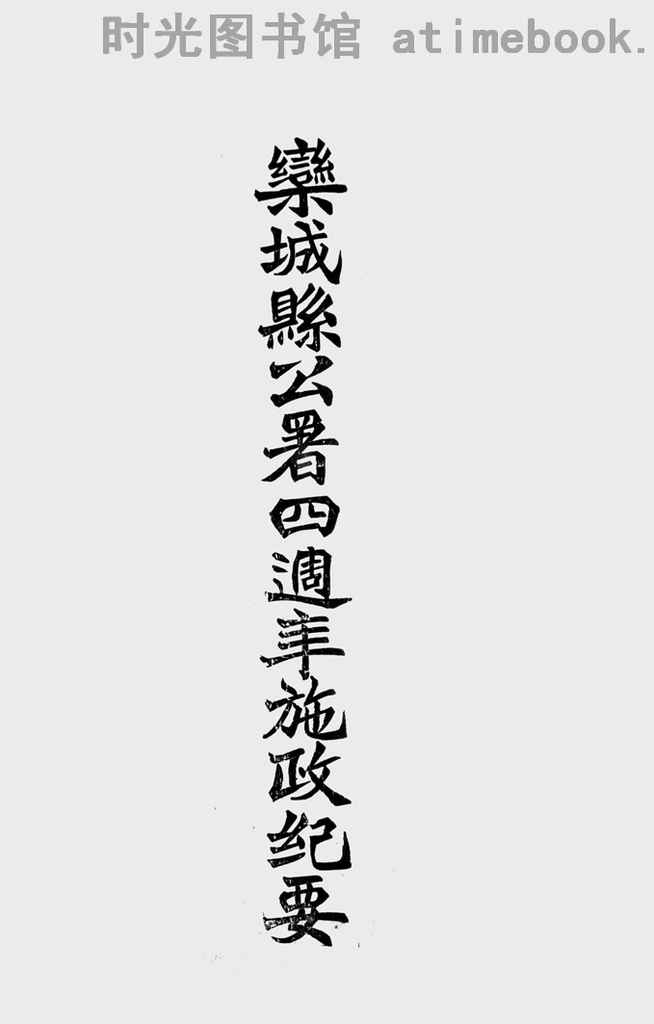 时光图书馆 atimebook.
欒城縣公署四週年施政纪要